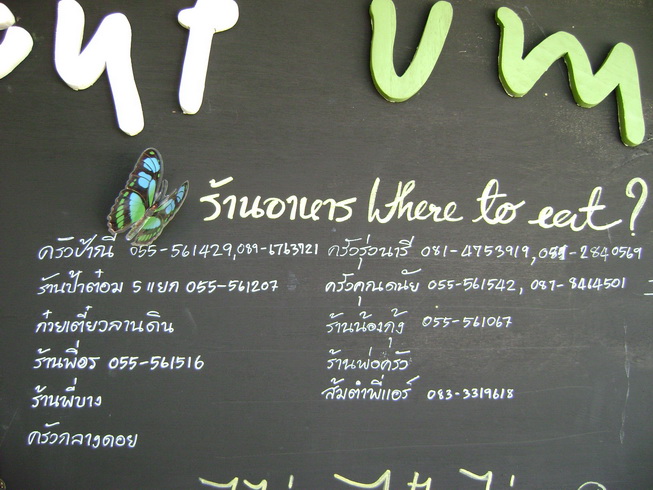 ร้านอาหาร Where to eat?
ครัวป้าณี 055-561429, 089-6763721
ร้านป้าต๋อม 5 แยก 055-561207
ก๋วยเตี๋ยวลานดิน
ร้านพี่อร 055-561516
ร้านพี่บาง
ครัวกลางดอย
ครัวรุ่งนารี 081-4753919, 081-2840569
ครัวคุณดนัย 055-561542, 087-8464501
ร้านน้องกุ้ง 055-561067
ร้านพ่อครัว
ส้มตำพี่แอร์ 083-3319618